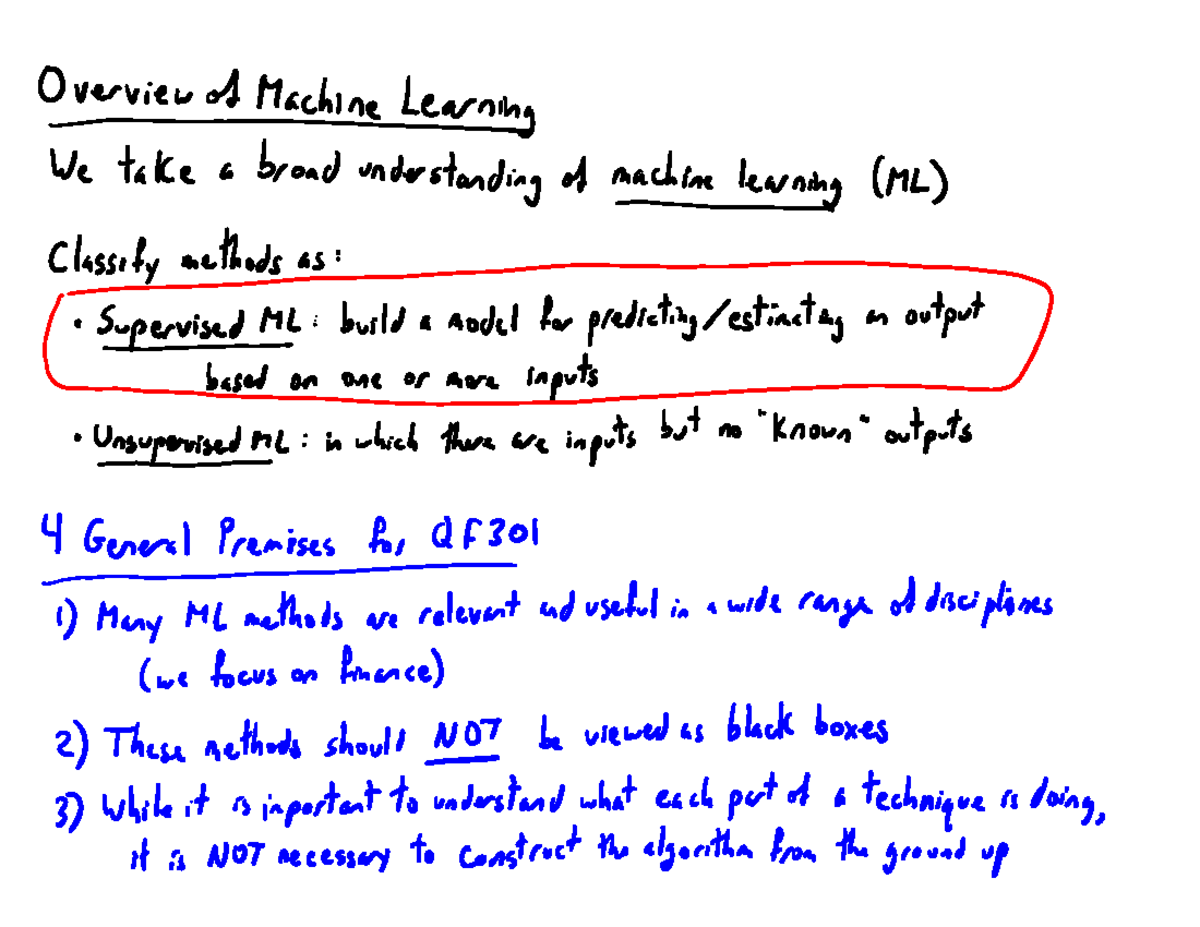 Overview of Machine Learning
We take a broad understanding of machine learning (ML)
Classify methods as:
• Supervised ML: build a model for predicting/estimating an output
based on one or more inputs
• Unsupervised ML: in which there are inputs but no "known" outputs
4 General Premises for QF301
1) Many ML methods are relevant and useful in a wide range of disciplines
(we focus on finance)
2) These methods should NOT be viewed as black boxes
3) While it is important to understand what each part of a technique is doing,
it is NOT necessary to construct the algorithm from the ground up